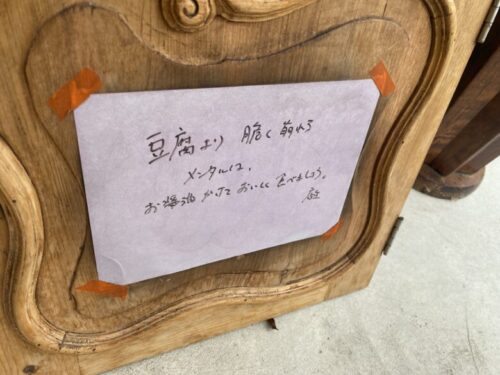 豆腐より 脆く崩れる
メンタルは、
お醤油かけておいしく食べましょう。